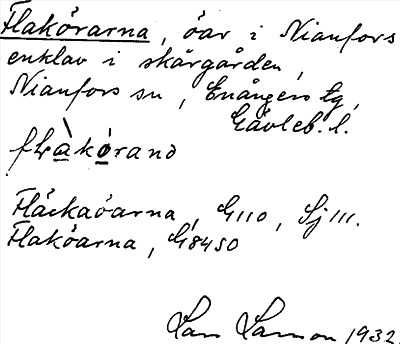 Flakörarna, öar i Nianfors
enklav i skärgården,
Nianfors sn, Enångers tg,
Gävleb. l.
flàkọraṇọ
Fläckaöarna, G110, Sj 111.
Flaköarna, G8450
Lars Larsson 1932.